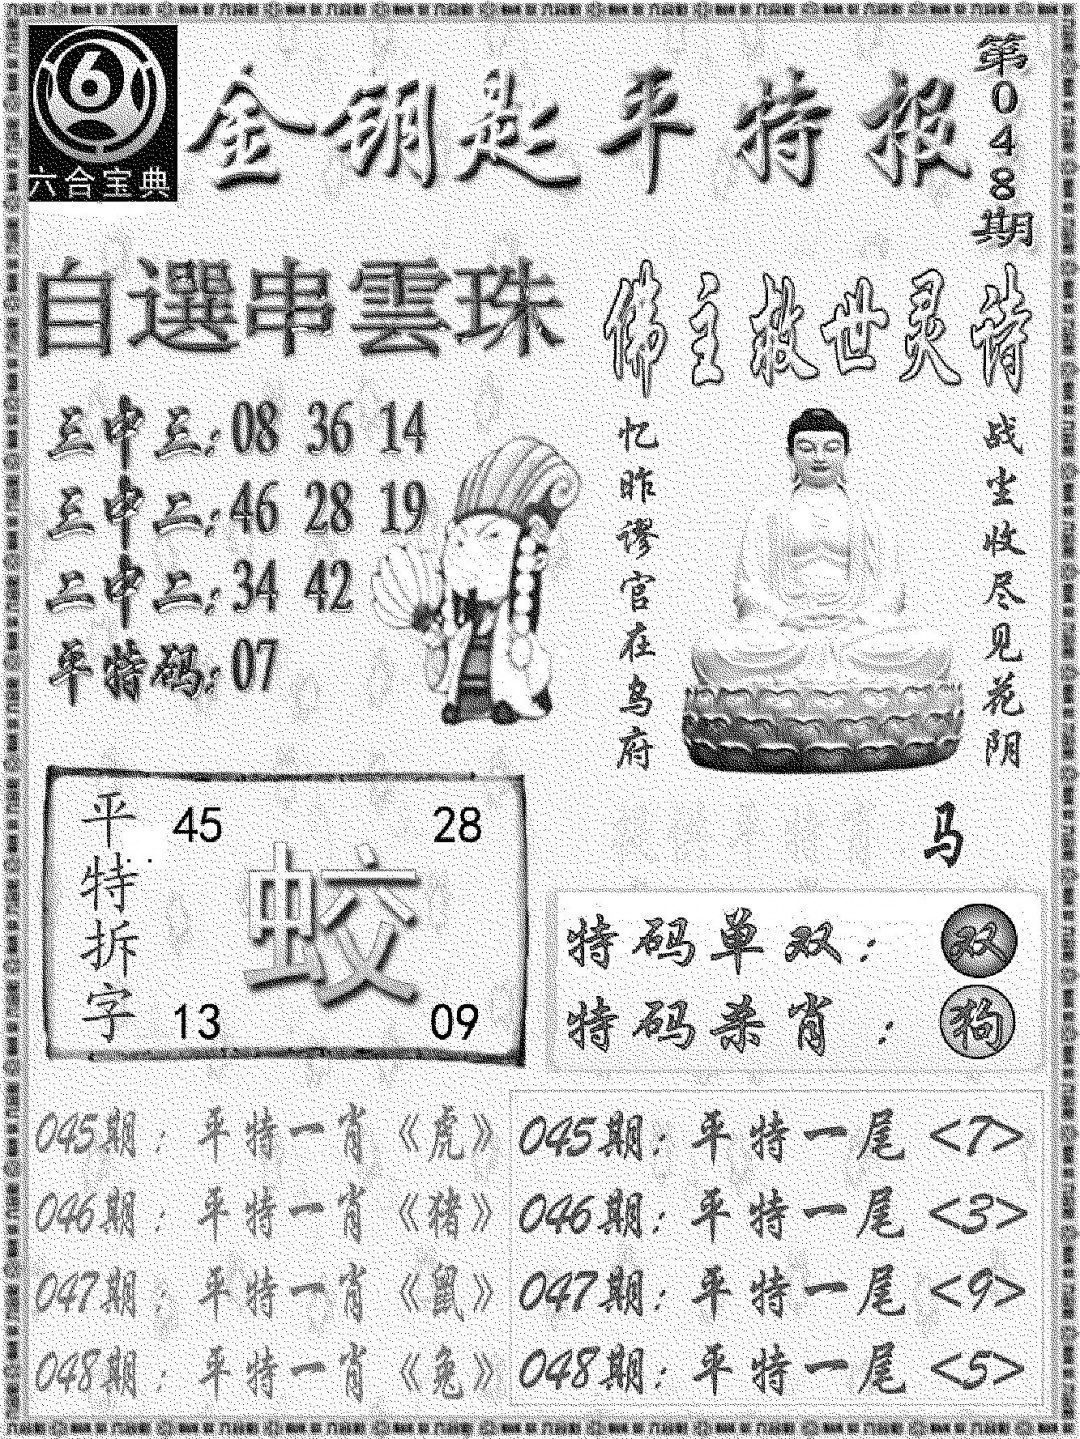 六合宝典
金钥匙平特报
第048期
自選串雲珠
三中三:08 36 14
三中二:46 28 19
二中二:34 42
平特码:07
佛主救世灵诗
战尘收尽见花阴
忆昨谬官在乌府
马
平特拆字
45 28
蛟
13 09
特码单双: 双
特码杀肖: 狗
045期:平特一肖《虎》
046期:平特一肖《猪》
047期:平特一肖《鼠》
048期:平特一肖《兔》
045期:平特一尾<7>
046期:平特一尾<3>
047期:平特一尾<9>
048期:平特一尾<5>